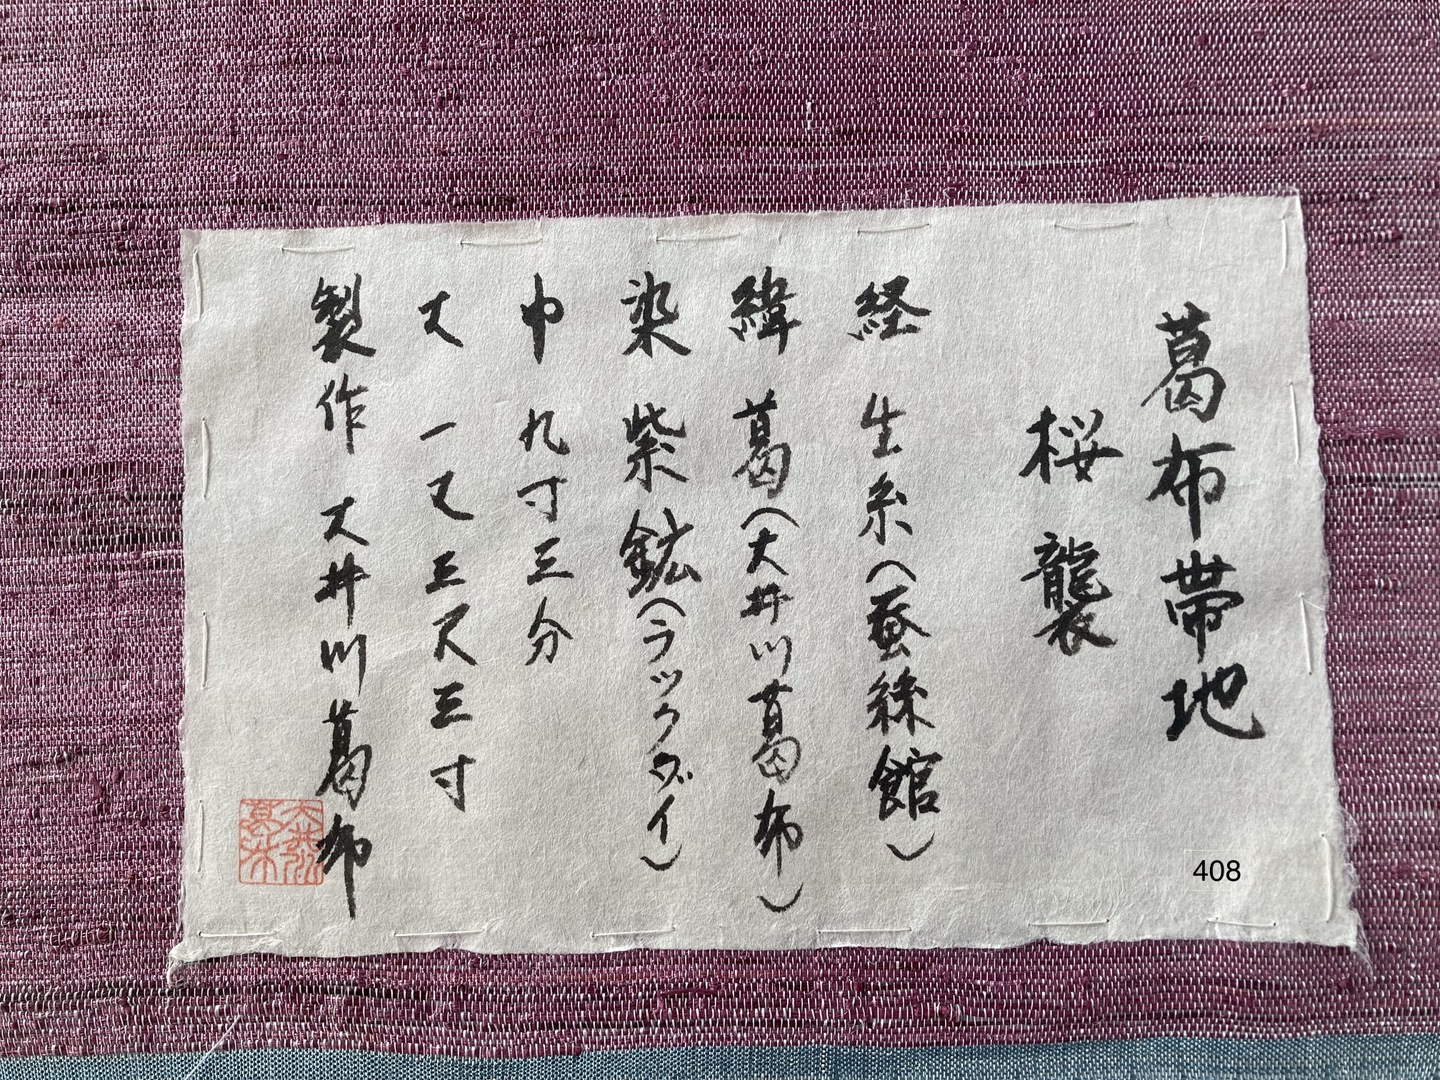 葛布帯地
桜襲
経 生糸(蚕絲館)
緯 葛(大井川葛布)
染 紫鉱(ラックダイ)
巾 九寸三分
丈 一丈三尺三寸
製作 大井川葛布
大井川葛布
408